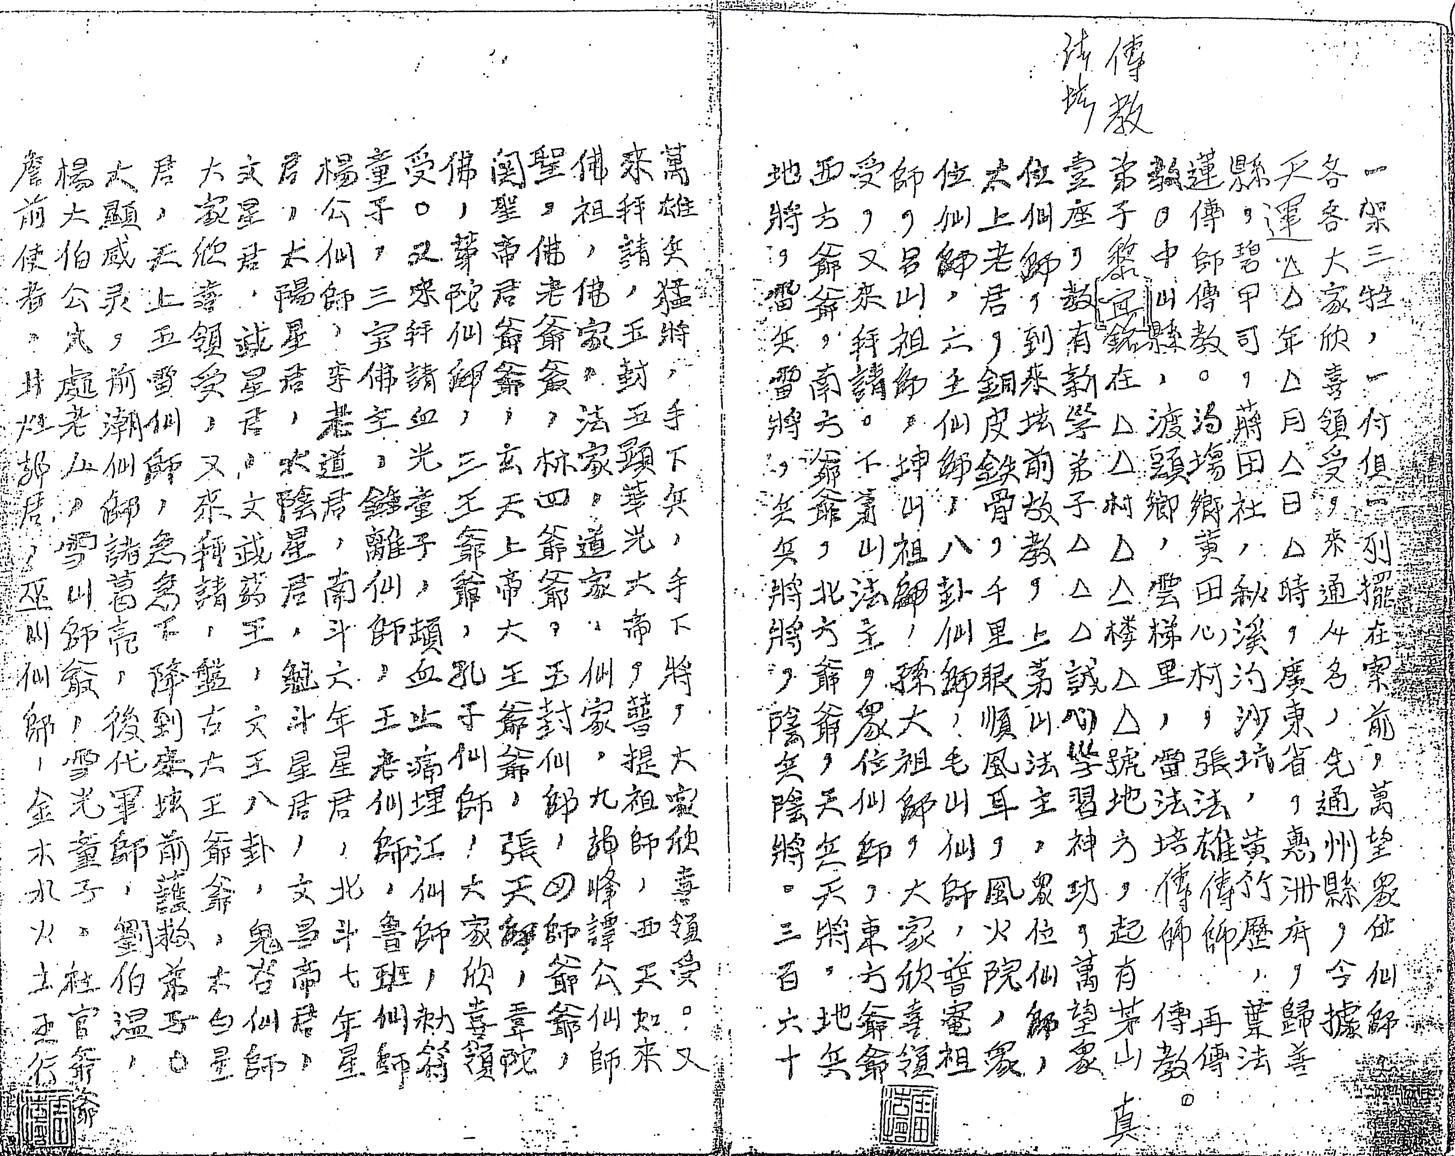 傳教
一架三牲，一付俱一列擺在案前，萬望眾位仙師
各各大家欣喜領受，來通人名，先通州縣，今據
天運△△年△月△日△時，廣東省，惠州府，歸善
縣，碧甲司，蔣田社，秋溪約沙坑，黃竹歷，葉法
蓮傳師傳教。湯塲鄉黃田心村，張法雄傳師 再傳
教。中山縣，渡頭鄉，雲梯里，雷法培傳師 傳教。
弟子黎宜銘在△△村△△楼△△號地方，起有茅山 真
壹座，教有新學弟子△△誠心學習神功，萬望眾
位仙師，到來坛前放教，上茅山法主，眾位仙師，
太上老君，銅皮鉄骨，千里眼順風耳，風火院，眾
位仙師，六壬仙師，八卦仙師，毛山仙師，普庵祖
師，呂山祖師。坤山祖師，孫大祖師，大家欣喜領
受，又來拜請。不蕭山法主，眾位仙師，東方爺爺
西方爺爺，南方爺爺，北方爺爺，天兵天將。地兵
地將，雷兵雷將，兵兵將將，陰兵陰將。三百六十
萬雄兵猛將，手下兵，手下將，大家欣喜領受。又
來拜請，玉封五顕華光大帝，菩提祖師，西天如來
佛祖，佛家。法家。道家、仙家。九龍峰譚公仙師
聖，佛老爺爺，林四爺爺。玉封仙師，四師爺爺，
関聖帝君爺爺，玄天上帝大王爺爺，張天師，韋陀
佛，華陀仙師，三王爺爺，孔子仙師，大家欣喜領
受。又來拜請血光童子，頓血止痛埋江仙師，勅符
童子，三宝佛主，鍾離仙師，王老仙師，魯班仙師
楊公仙師，李老道君，南斗六年星君，北斗七年星
君，太陽星君，太陰星君，魁斗星君，文昌帝君，
文星君，武星君，文武葯王，文王八卦，鬼谷仙師
大家欣喜領受，又來拜請，盤古大王爺爺，太白星
君，天上五雷仙師，急急下降到來坛前護救弟子。
大顯威灵，前潮仙師諸葛亮，後代軍師，劉伯温，
楊大伯公，雪山師爺，雪光童子。社官爺爺
詹前使者。郭居，巫仙師，金木水火土五行